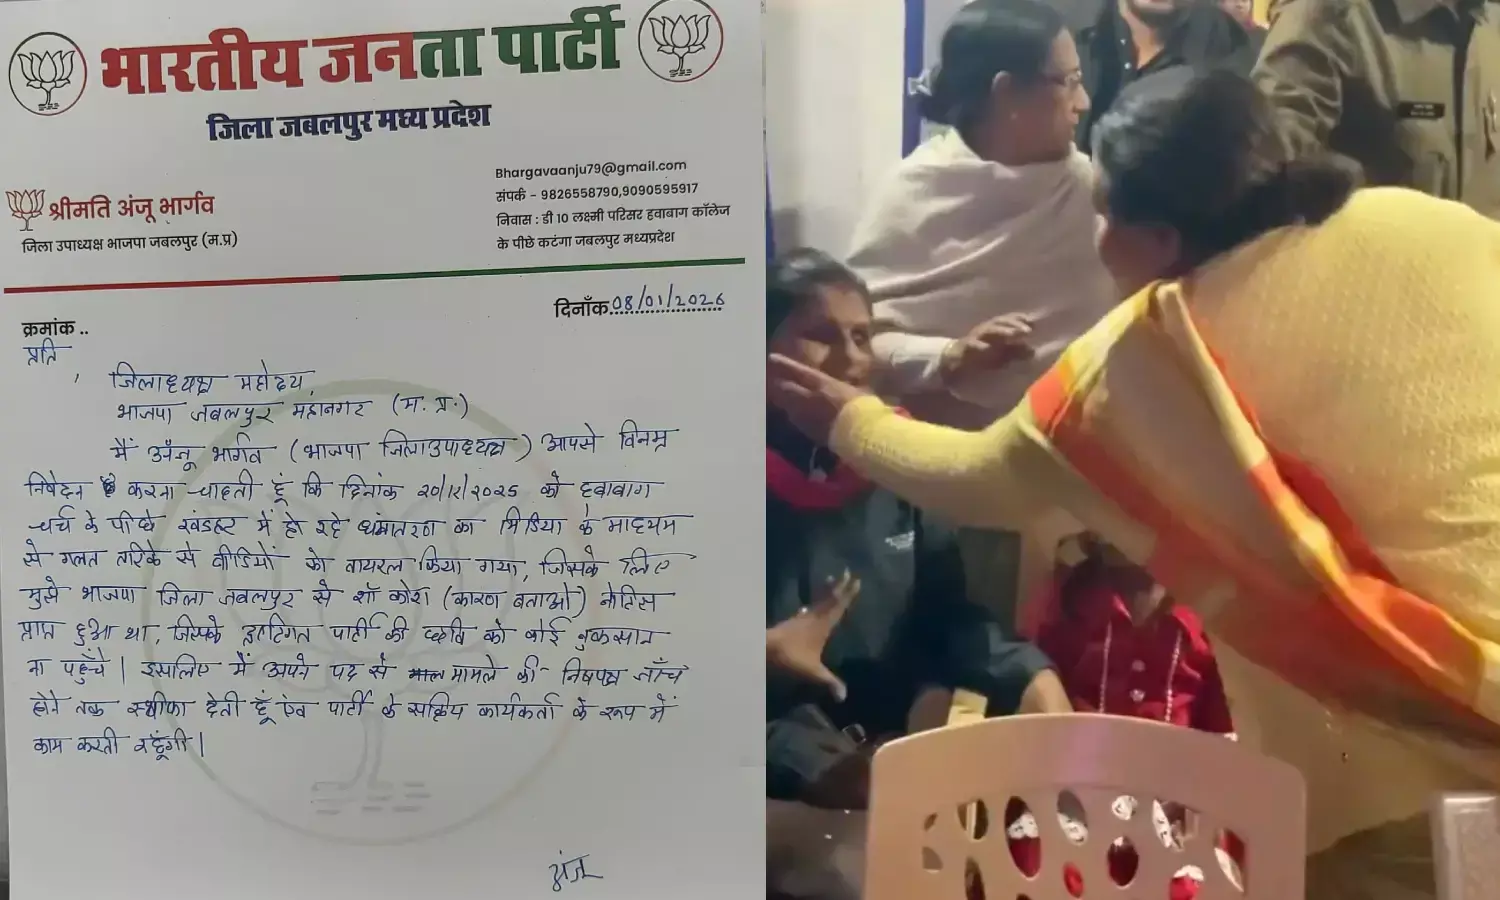 भारतीय जनता पार्टी
जिला जबलपुर मध्य प्रदेश
श्रीमति अंजू भार्गव
जिला उपाध्यक्ष भाजपा जबलपुर (म.प्र)
Bhargavaanju79@gmail.com
संपर्क - 9826558790,9090595917
निवास : डी 10 लक्ष्मी परिसर हवाबाग कॉलेज
के पीछे कटंगा जबलपुर मध्यप्रदेश
दिनाँक.08/01/2026
क्रमांक ..
प्रति
,
जिलाध्यक्ष महोदय,
भाजपा जबलपुर महानगर (म. प्र.)
मैं अँजू भार्गव (भाजपा जिलाउपाध्यक्ष) आपसे विनम्र
निवेदन करना चाहती हूं कि दिनांक २०/१२/२०२५ को हवाबाग
चर्च के पीछे खंडहर में हो रहे धर्मातरण का मिडिया के माध्यम
से गलत तरिके से वीडियों को वायरल किया गया, जिसके लिए
मुझे भाजपा जिला जबलपुर से शॉ कोश (कारण बताओ) नोटिस
प्राप्त हुआ था, जिसके दृष्टिगत पार्टी की छवि को कोई नुकसान
ना पहुँचे | इसलिए मैं अपने पद से मामले की निष्पक्ष जाँच
होने तक स्थीफा देती हूं एंव पार्टी के सक्रिय कार्यकर्ता के रूप में
काम करती रहूंगी |
अंजू